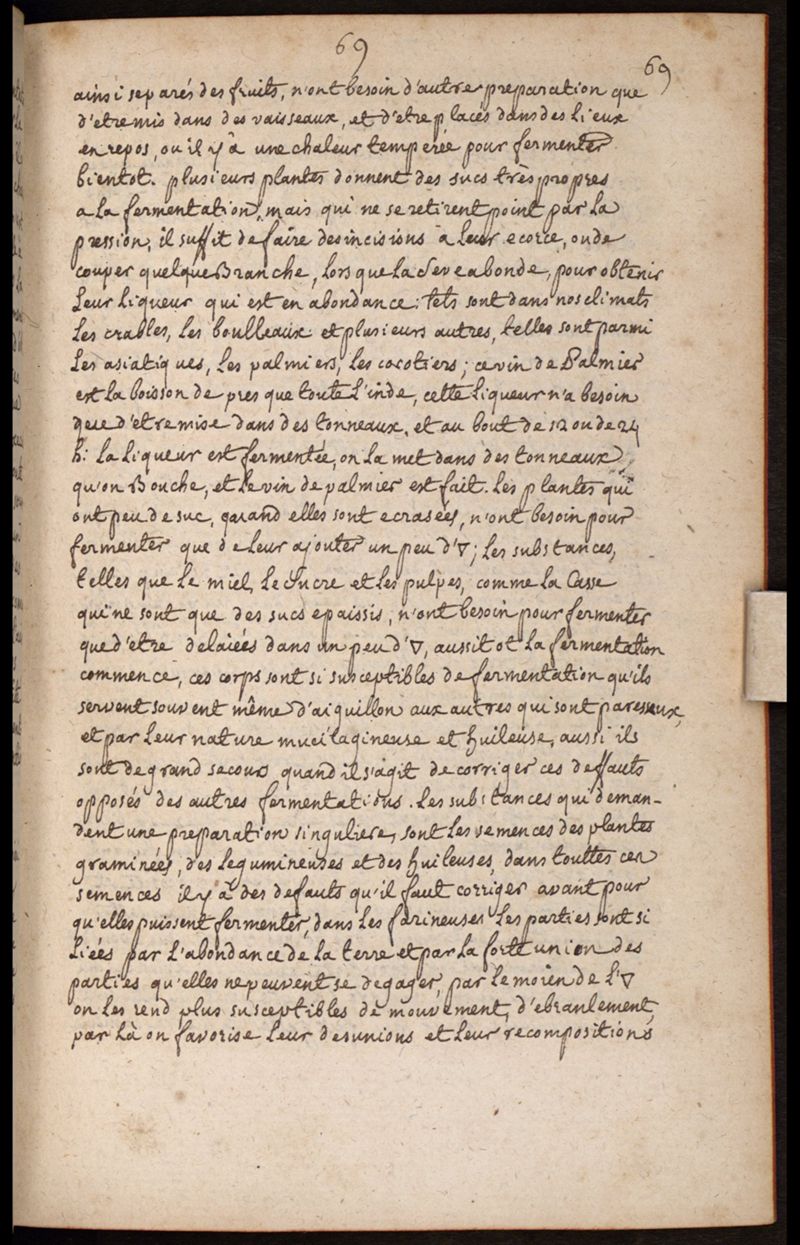 69
69
ainsi separés des fruits, n'ont besoin d'autre preparation que
d'etre mis dans des vaisseaux, et d'etre placés dans des lieux
en repos, ou il y â une chaleur temperée pour fermenter
bientot. plusieurs plantes donnent des sucs très propres
a la fermentation, mais qui ne se retirent point par la
pression, il suffit de faire des incisions a leur ecorce, ou de
couper quelque Branche, lors que la Seve abonde, pour obtenir
leur liqueur qui est en abondance; tels sont dans nos climats
les erables, les boulleaux et plusieurs autres, telles sont parmi
les asiatiques, les palmiers, les cocotiers; ce vin de Palmier
est la boisson de pres que toute l'inde, cette liqueur n'a besoin
que d'etre mise dans des tonneaux, et au bout de 12 ou de 24
h: la liqueur est fermentée, on la met dans des tonneaux,
qu'on Bouche, et le vin de palmier est fait. les plantes qui
ont peu de suc, quand elles sont ecrasées, n'ont besoin pour
fermenter que de leur ajouter un peu d'▽; les substances,
telles que le miel, le Sucre et les pulpes, comme la Casse
qui ne sont que des sucs epaissis, n'ont besoin pour fermenter
que d'etre delaiées dans un peu d'▽, aussitot la fermentation
commence, ces corps sont si susceptibles de fermentation qu'ils
servent souvent même d'aiguillon aux autres qui sont paresseux,
et par leur nature mucilagineuse et huileuse, aussi ils
sont de grand secours quand il s'agit de corriger ces deffauts
opposés des autres fermentations. les substances qui deman-
dent une preparation singuliere, sont les semences des plantes
graminées, des legumineuses et des huileuses, dans touttes ces
semences il y â des defauts qu'il faut corriger avant pour
qu'elles puissent fermenter, dans les farineuses les parties sont si
liées par l'abondance de la terre et par la forte union des
parties qu'elles ne peuvent se degager, par le moien de l'▽
on les rend plus susceptibles de mouvement, d'ebranlement,
par là on favorise leur desunions et leur recompositions